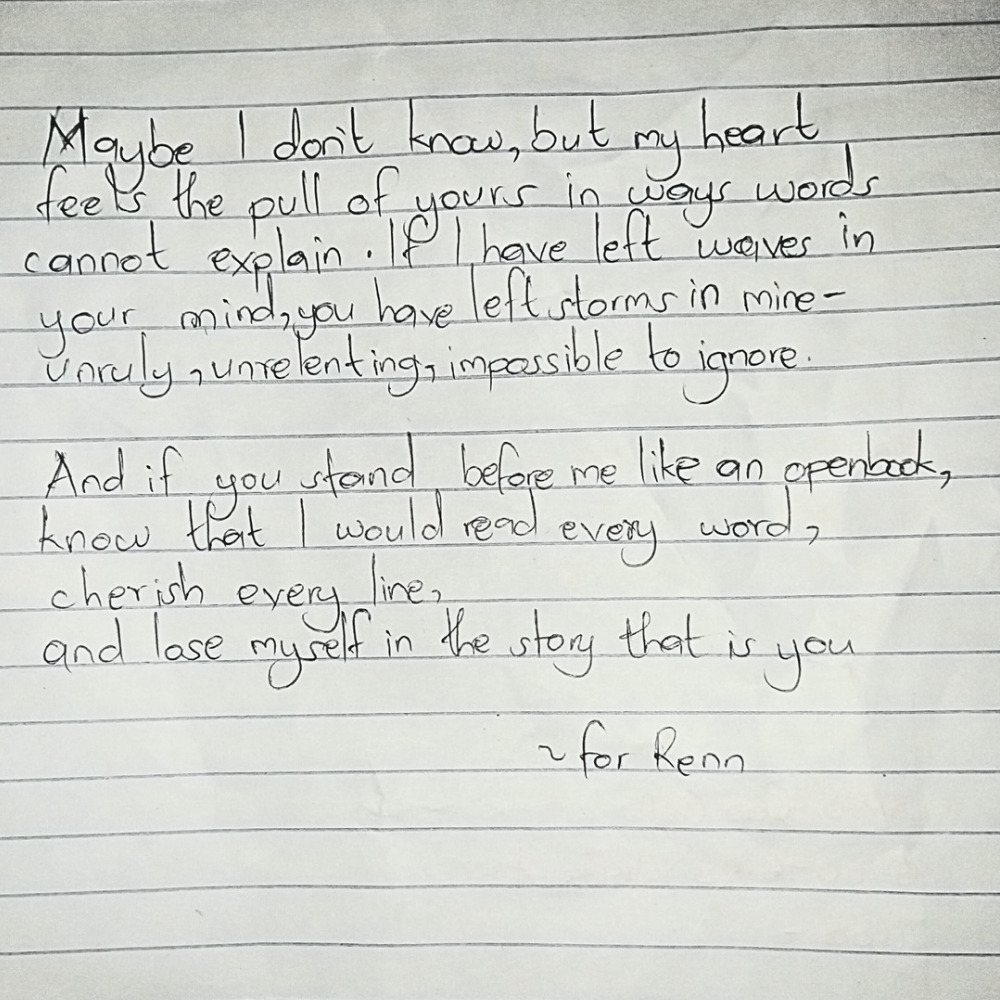 Maybe I don't know, but my heart
feels the pull of yours in ways words
cannot explain. If I have left waves in
your mind, you have left storms in mine-
unruly, unrelenting, impossible to ignore.
And if you stand before me like an openbook,
know that I would read every word,
cherish every line,
and lose myself in the story that is you
~ for Renn